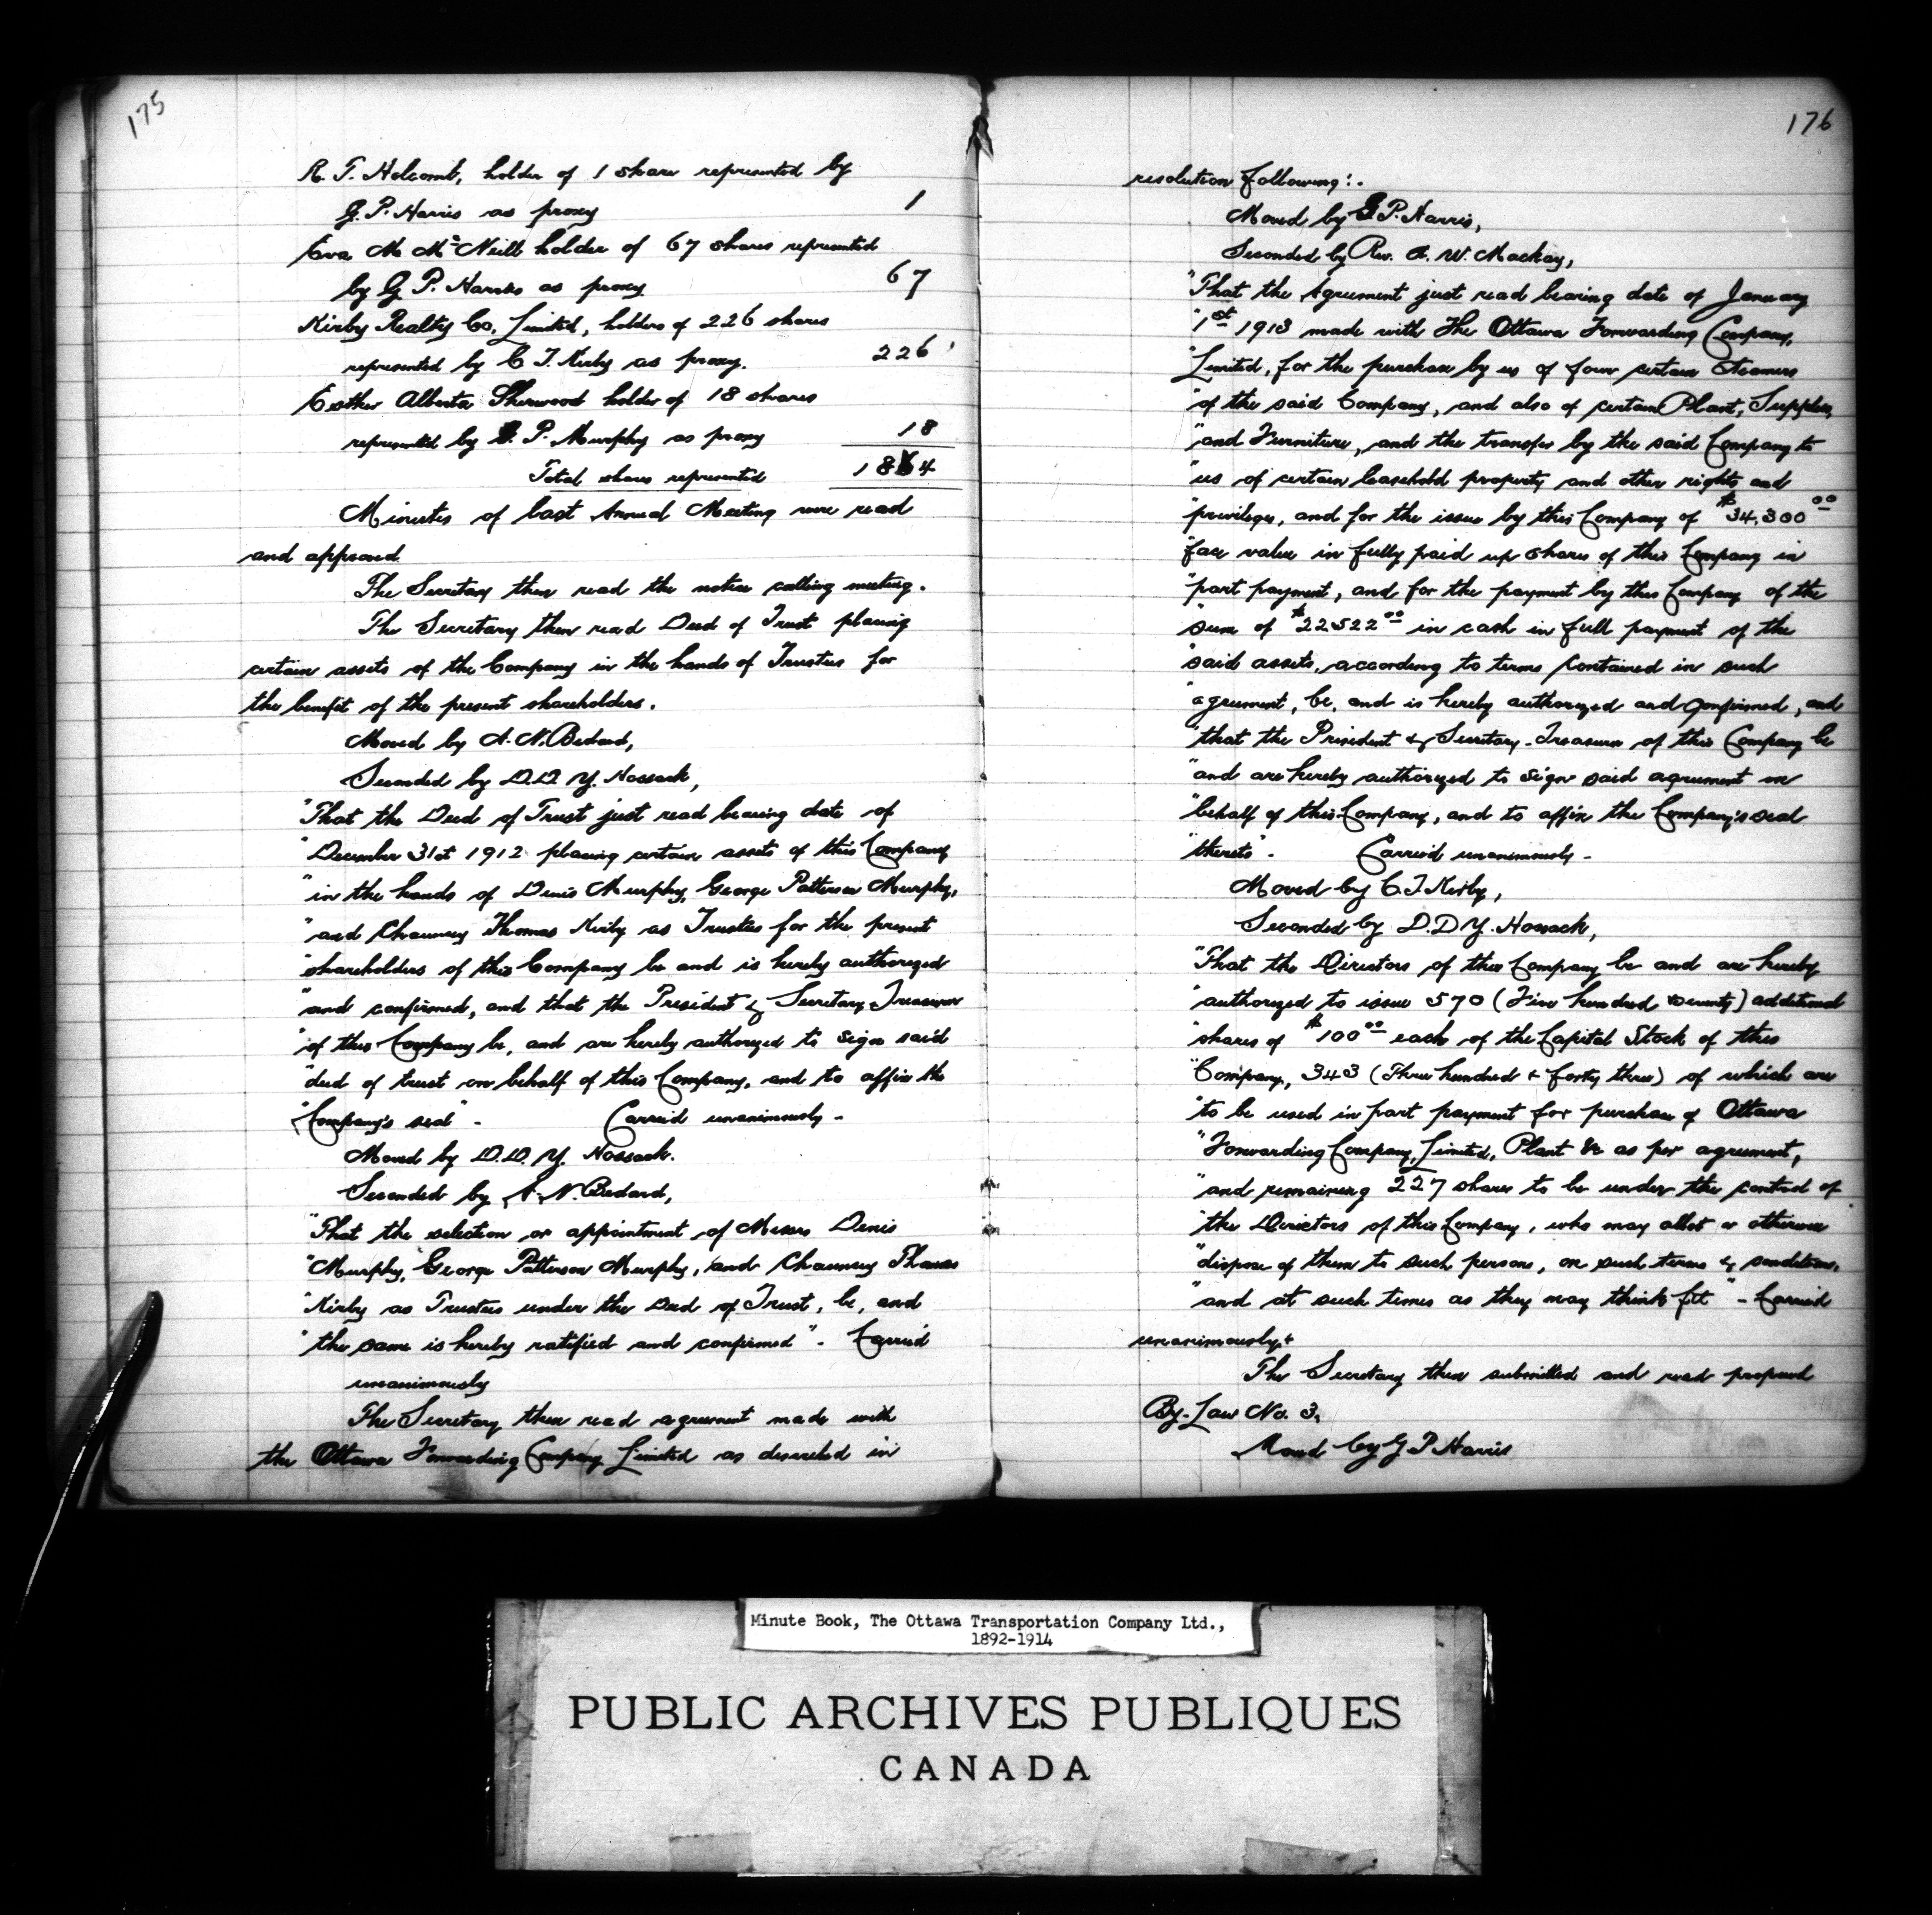 175
R. T. Holcomb, holder of 1 share represented by
G. P. Harris as proxy 1
Eva M. McNeill holder of 67 shares represented
by G P. Harris as proxy 67
Kirby Realty Co. Limited, holders of 226 shares
represented by C T. Kirby as proxy. 226
Esther Alberta Sherwood holder of 18 shares
represented by G. P. Murphy as proxy 18
Total shares represented 1864
Minutes of last Annual Meeting were read
and approved
The Secretary then read the notice calling meeting.
The Secretary then read Deed of Trust placing
certain assets of the Company in the hands of Trustees for
the benefit of the present shareholders.
Moved by A. N. Bedard,
Seconded by D.D. Y. Hossack,
"That the Deed of Trust just read bearing date of
"December 31st 1912 placing certain assets of this Company
"in the hands of Denis Murphy, George Patterson Murphy,
"and Chauncey Thomas Kirby as Trustees for the present
"shareholders of this Company be and is hereby authorized
"and confirmed, and that the President & Secretary-Treasurer
"of this Company be, and are hereby authorized to sign said
"deed of trust on behalf of this Company, and to affix the
"Company's seal" - Carried unanimously -
Moved by D.D. Y. Hossack.
Seconded by A. N. Bedard,
"That the selection or appointment of Messrs Denis
"Murphy, George Patterson Murphy, and Chauncey Thomas
"Kirby as Trustees under the Deed of Trust, be, and
"the same is hereby ratified and confirmed". Carried
unanimously
The Secretary then read agreement made with
the Ottawa Forwarding Company Limited as described in
176
resolution following:.
Moved by G. P. Harris,
Seconded by Rev. A. W. Mackay,
"That the Agreement just read bearing date of January
"1st 1913 made with The Ottawa Forwarding Company,
"Limited, for the purchase by us of four certain Steamers
"of the said Company, and also of certain Plant, Supplies,
"and Furniture, and the transfer by the said Company to
"us of certain leasehold property and other rights and
"privileges, and for the issue by this Company of $34,300 00
"face value in fully paid up shares of this Company in
"part payment, and for the payment by this Company of the
"sum of $22522 00 in cash in full payment of the
"said assets, according to terms contained in such
"agreement, be, and is hereby authorized and confirmed, and
"that the President & Secretary-Treasurer of this Company be
"and are hereby authorized to sign said agreement on
"behalf of this Company, and to affix the Company's seal
"thereto". Carried unanimously -
Moved by C. T. Kirby,
Seconded by D.D Y. Hossack,
"That the Directors of this Company be and are hereby
"authorized to issue 570 (Five hundred & seventy) additional
"shares of $100 00 each of the Capital Stock of this
"Company, 343 (Three hundred & forty three) of which are
"to be used in part payment for purchase of Ottawa
"Forwarding Company, Limited, Plant &c as per agreement,
"and remaining 227 shares to be under the control of
"the Directors of this Company, who may allot or otherwise
"dispose of them to such persons, on such terms & conditions,
"and at such times as they may think fit" - Carried
unanimously.
The Secretary then submitted and read proposed
By-Law No. 3,
Moved by G P Harris
Minute Book, The Ottawa Transportation Company Ltd.,
1892-1914
PUBLIC ARCHIVES PUBLIQUES
CANADA